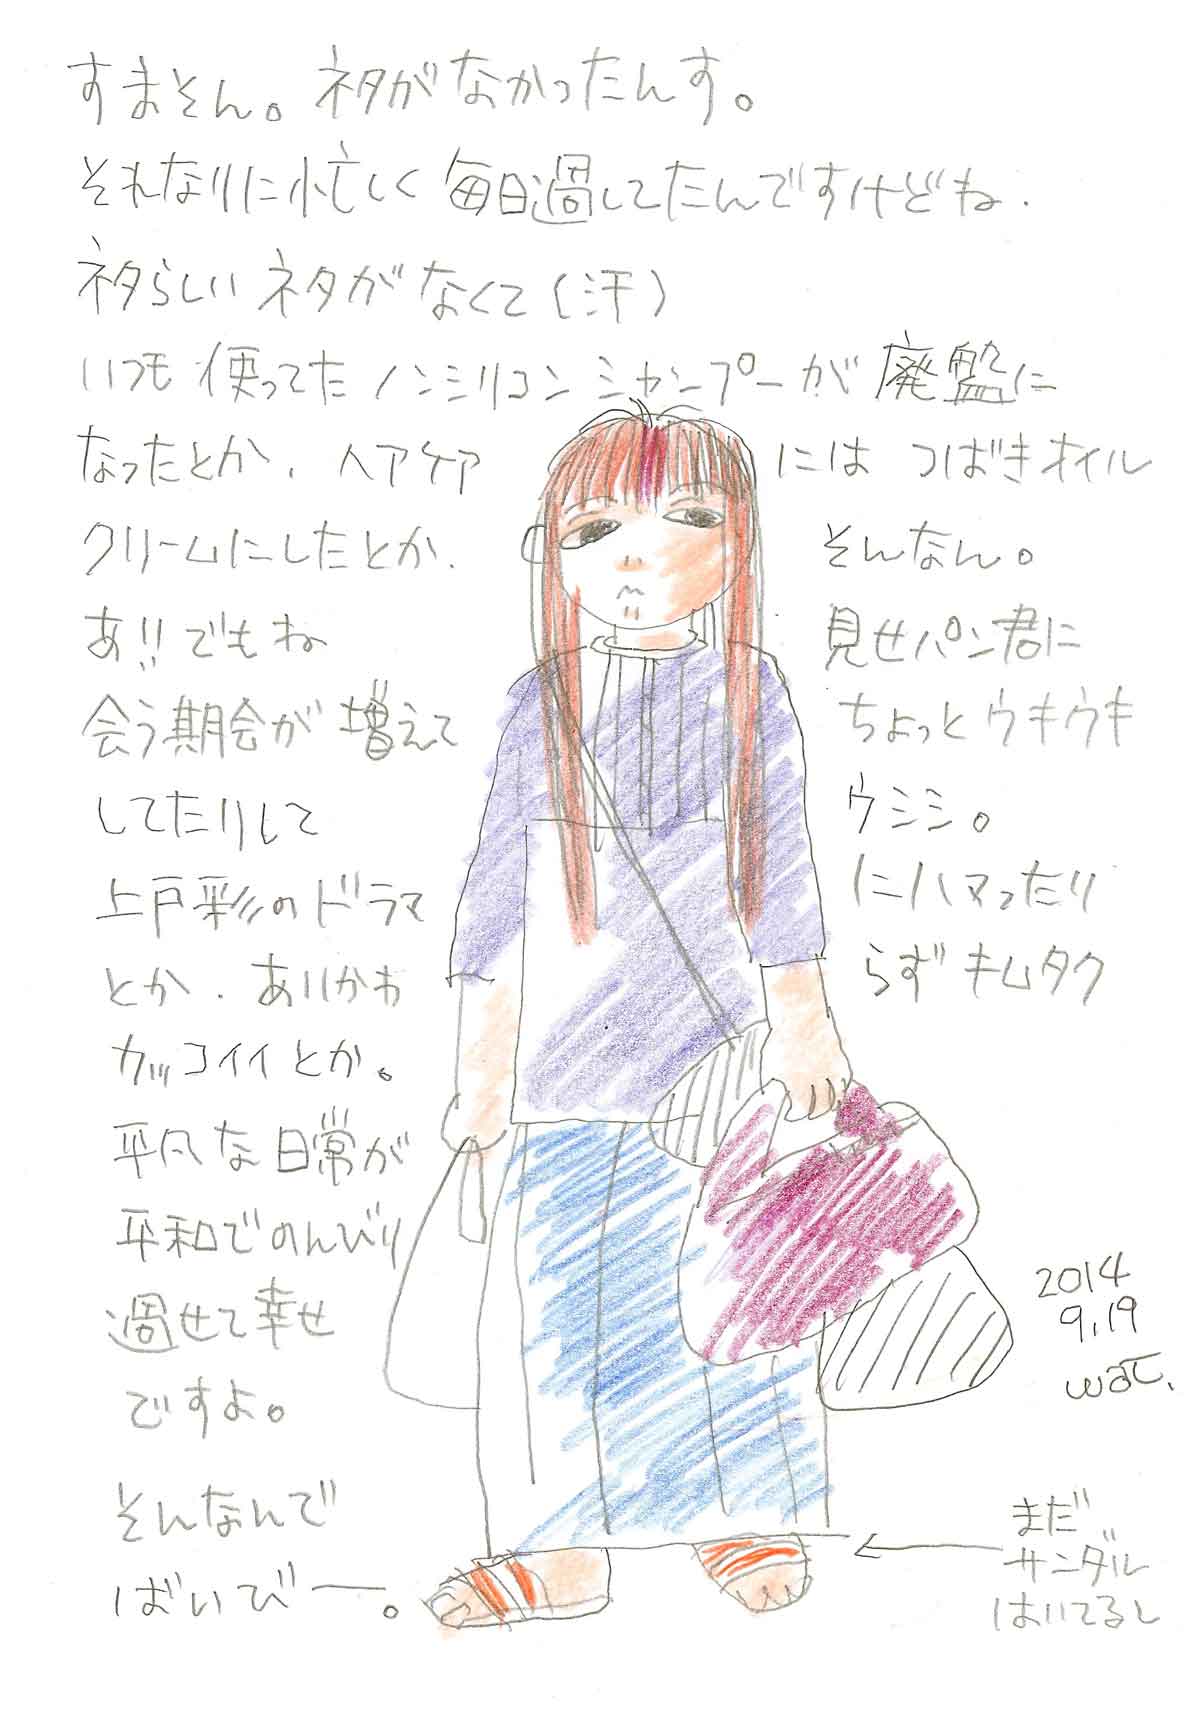 すまそん。ネタがなかったんす。
それなりに忙しく毎日過してたんですけどね.
ネタらしいネタがなくて(汗)
いつも使ってたノンシリコンシャンプーが廃盤に
なったとか、ヘアケアにはつばきオイル
クリームにしたとか、そんなん。
あ!!でもね見せパン君に
会う期会が増えてちょっとウキウキ
してたりしてウシシ。
上戸彩のドラマにハマったり
とか、あいかわらずキムタク
カッコイイとか。
平凡な日常が
平和でのんびり
過せて幸せ
ですよ。
そんなんで
ばいびー。
2014
9.19
wat.
まだ
サンダル
はいてるし